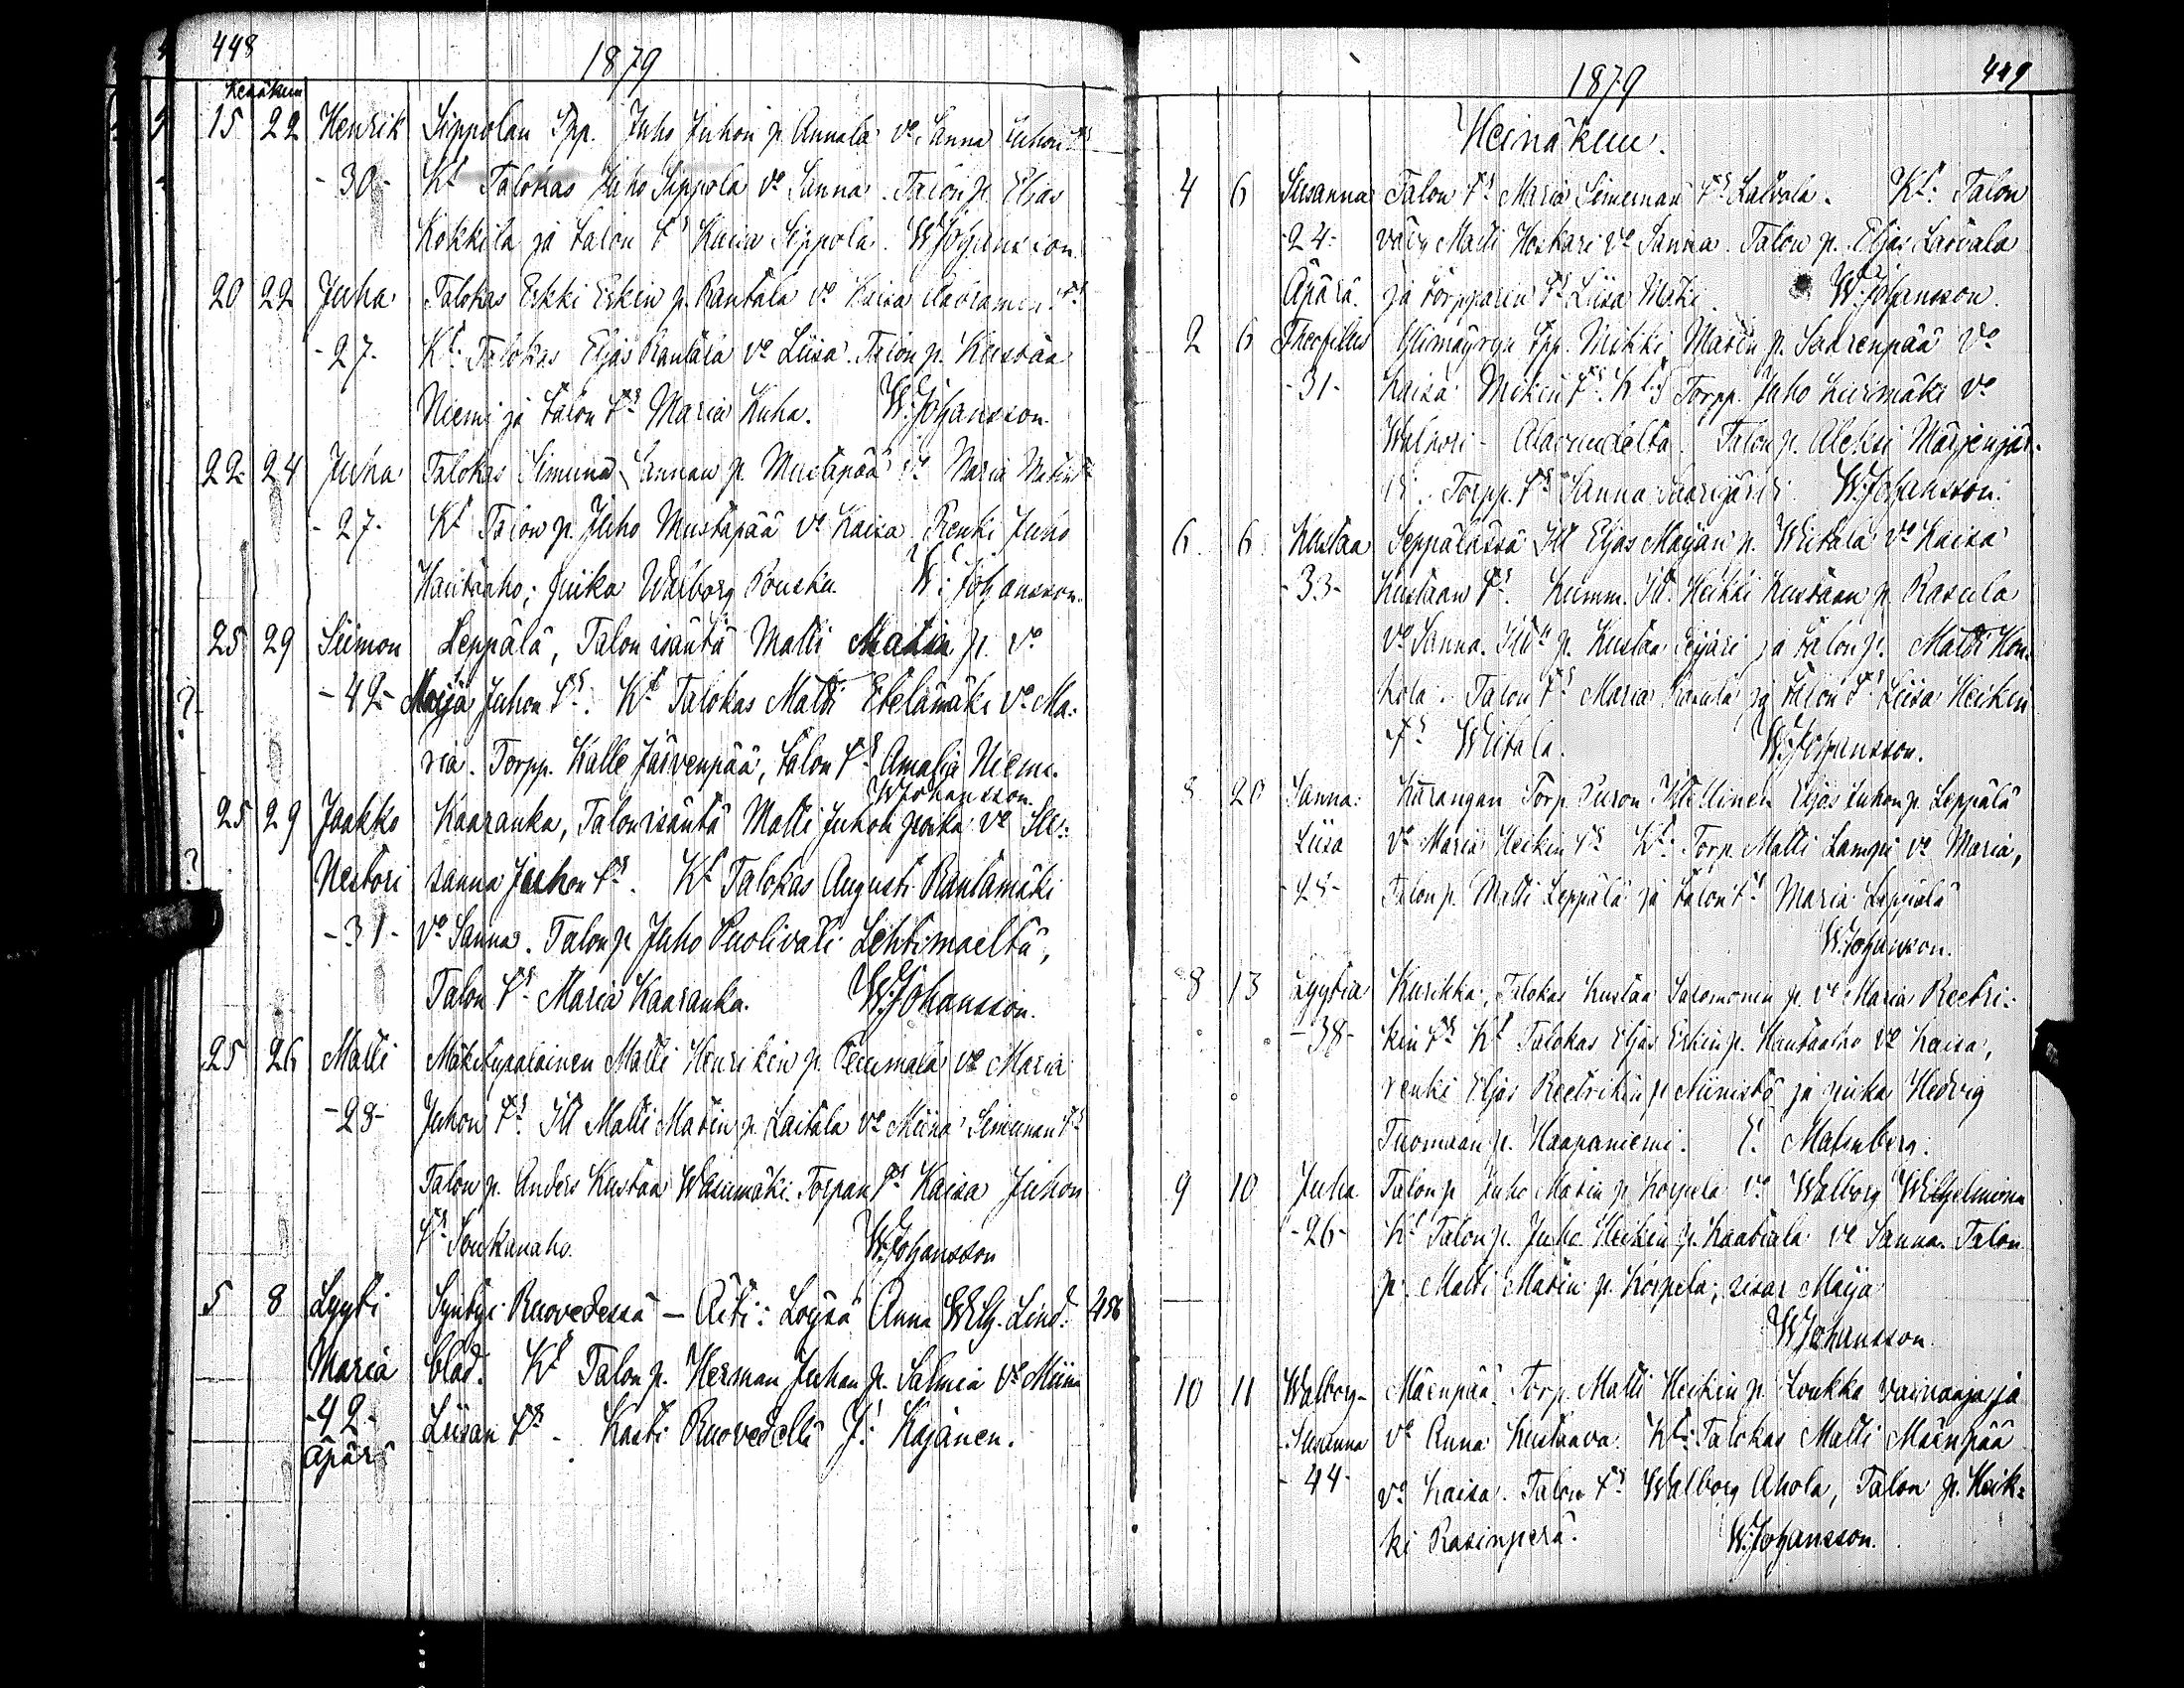 448
1879
Kesäkuu
15 22 Henrik Sippolan Tpp. Juho Juhon p. Annala vo Sanna Juhon trs
-30- Kt Talokas Juho Sippola vo Sanna. Talon p. Elias
Kokkila ja talon trs Kaisa Sippola. W:Johansson.
20 22 Juha Talokas Erkki Erkin p. Rantala vo Kaisa trs
-27- Kt: Talokas Eljas Rantala vo Liisa. Talon p. Kustaa
Niemi ja talon trs Maria Kuha. W:Johansson.
22 24 Juha Talokas Simuna Sannan p. Mustapää vo Maria Matin trs
-27- Kt Talon p. Juho Mustapää vo Kaisa Renki Juho
Hautaaho; piika Walborg Pouska. W:Johansson.
25 29 Siimon Leppälä, Talon isäntä Matti Matin p. vo
-42- Maija Juhon trs. Kt Talokas Matti Etelämäki vo Ma:
ria. Torpp. Kalle Järvenpää, talon trs Amalia Niemi.
W:Johansson.
25 29 Jaakko Kaaranka, Talon isäntä Matti Juhon poika vo Su:
Nestori sanna Juhon trs. Kt Talokas Augusti Rantamäki
-31- vo Sanna. Talon p. Juho Puoliväli Lehtimaelta,
Talon trs Maria Kaaranka. W:Johansson.
25 26 Matti Mäkitupalainen Matti Henrikin p. vo Maria
-28- Juhon trs. Itt Matti Matin p. Laitala vo Miina Simunan trs
Talon p. Anders Kustaa Wasumäki. Torpan trs Kaisa Juhon
trs Soukanaho. W:Johansson
5 8 Lyyti Syntyi Ruovedessä – Äiti: Loysä Anna Wilh. Lind: 456
Maria blad. Kt Talon p. Herman Juhan p. Salmia vo Miina
-42- Liisan trs. Kasti Ruovedellä J: Kajanen.
äpärä
449
1879
Heinäkuu.
4 6 Susanna Talon trs Maria Simunan trs Latvala. Kt: Talon
-24- vävy Matti Hoskari vo Sanna. Talon p. Eljas Latvala
Äpärä. ja torpparin trs Liisa Mäki. W:Johansson.
2 6 Theofilus Ylimäyryn tpp. Mikki Matin p. Saarenpää vo
-31- Kaisa Mikin trs. Kt: Torpp. Juho vo
Walpori - Alavudelta. Talon p. Aleksi Märjenjär:
vi. Torpp. trs Sanna Saarijärvi. W:Johansson.
6. 6. Kustaa Seppälässä Itt Eljas Maijan p. Wiitala vo Kaisa
-33- Kustaan trs. Kumm. Itt. Heikki Kustaan p. Rasula
vo Sanna. p. Kustaa ja talon p. Matti Kon:
kola. Talon trs Maria Rasula ja talon trs Liisa Heikin
trs Wiitala. W:Johansson.
8 20 Sanna Kaarangan Torp. Eljas Juhon p. Leppälä
Liisa vo Maria Heikin trs Kt: Torp. Matti Lampi vo Maria,
-25- Talon p. Matti Leppälä ja talon trs Maria Leppälä
W:Johansson.
8 13 Lyytia Kurikka, Talokas Kustaa Salomonin p. vo Maria Reetri:
-38- kin trs Kt Talokas Eljas Erkin p. Hautaaho vo Kaisa,
renki Eljas Reetrikin p. Niinistö ja piika Hedvig
Tuomaan p. Haapaniemi. E. Malmberg.
9 10 Juha Talon p. Juho Matin p. Korpela vo Walborg Wilhelmiina
-26- Kt Talon p. Juho Heikin p. Kaatiala vo Sanna. Talon
p. Matti Matin p. Korpela; sisar Maija
W:Johansson.
10 11 Walborg- Mäenpää Torp. Matti Heikin p. Loukka ja
Susanna vo Anna Kustaava. Kt: Talokas Matti Mäenpää
-44- vo Kaisa. Talon trs Walborg Ahola, Talon p. Heik:
ki Rasinperä. W:Johansson.